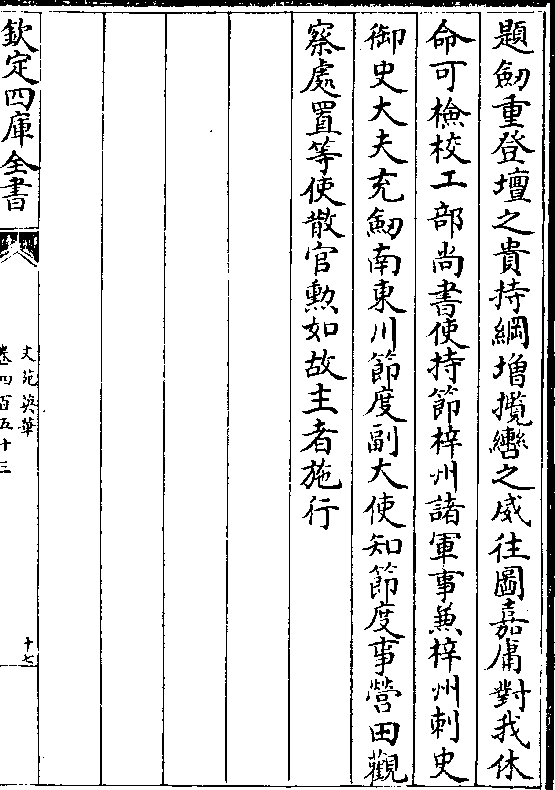 題劒重登壇之貴持綱増攬轡之威往圖嘉庸對我休
命可檢校工部尚書使持節梓州諸軍事兼梓州刺史
御史大夫充劒南東川節度副大使知節度事營田觀
察處置等使散官勲如故主者施行
欽定四庫全書
文苑英華
卷四百五十三
十七